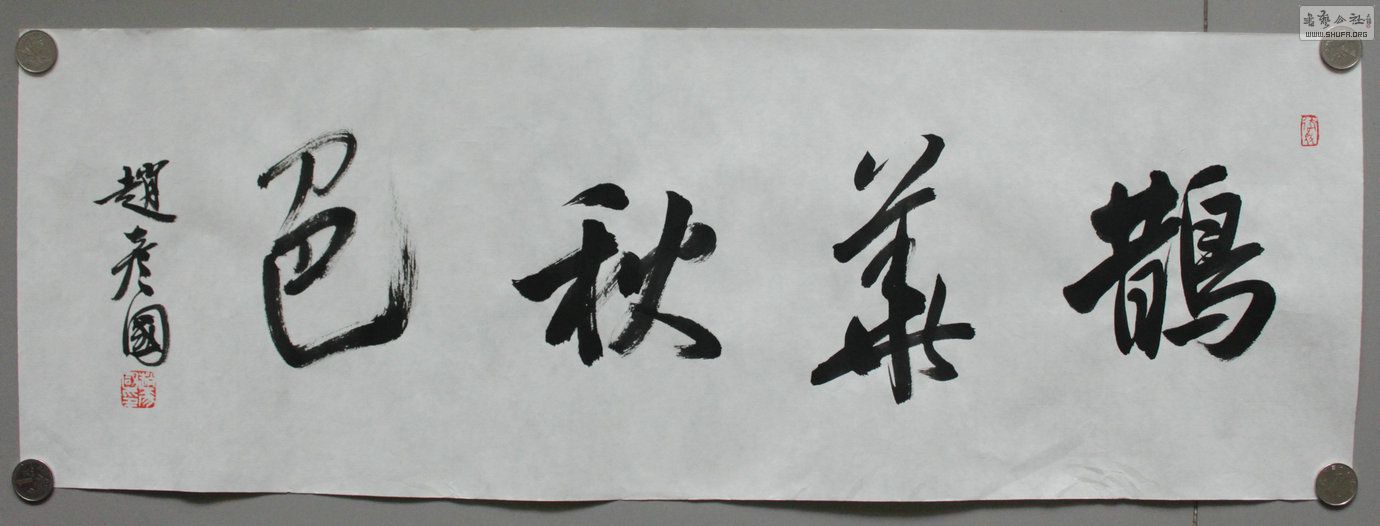 鵲華秋色
趙彦國
书艺公社
WWW.SHUFA.ORG